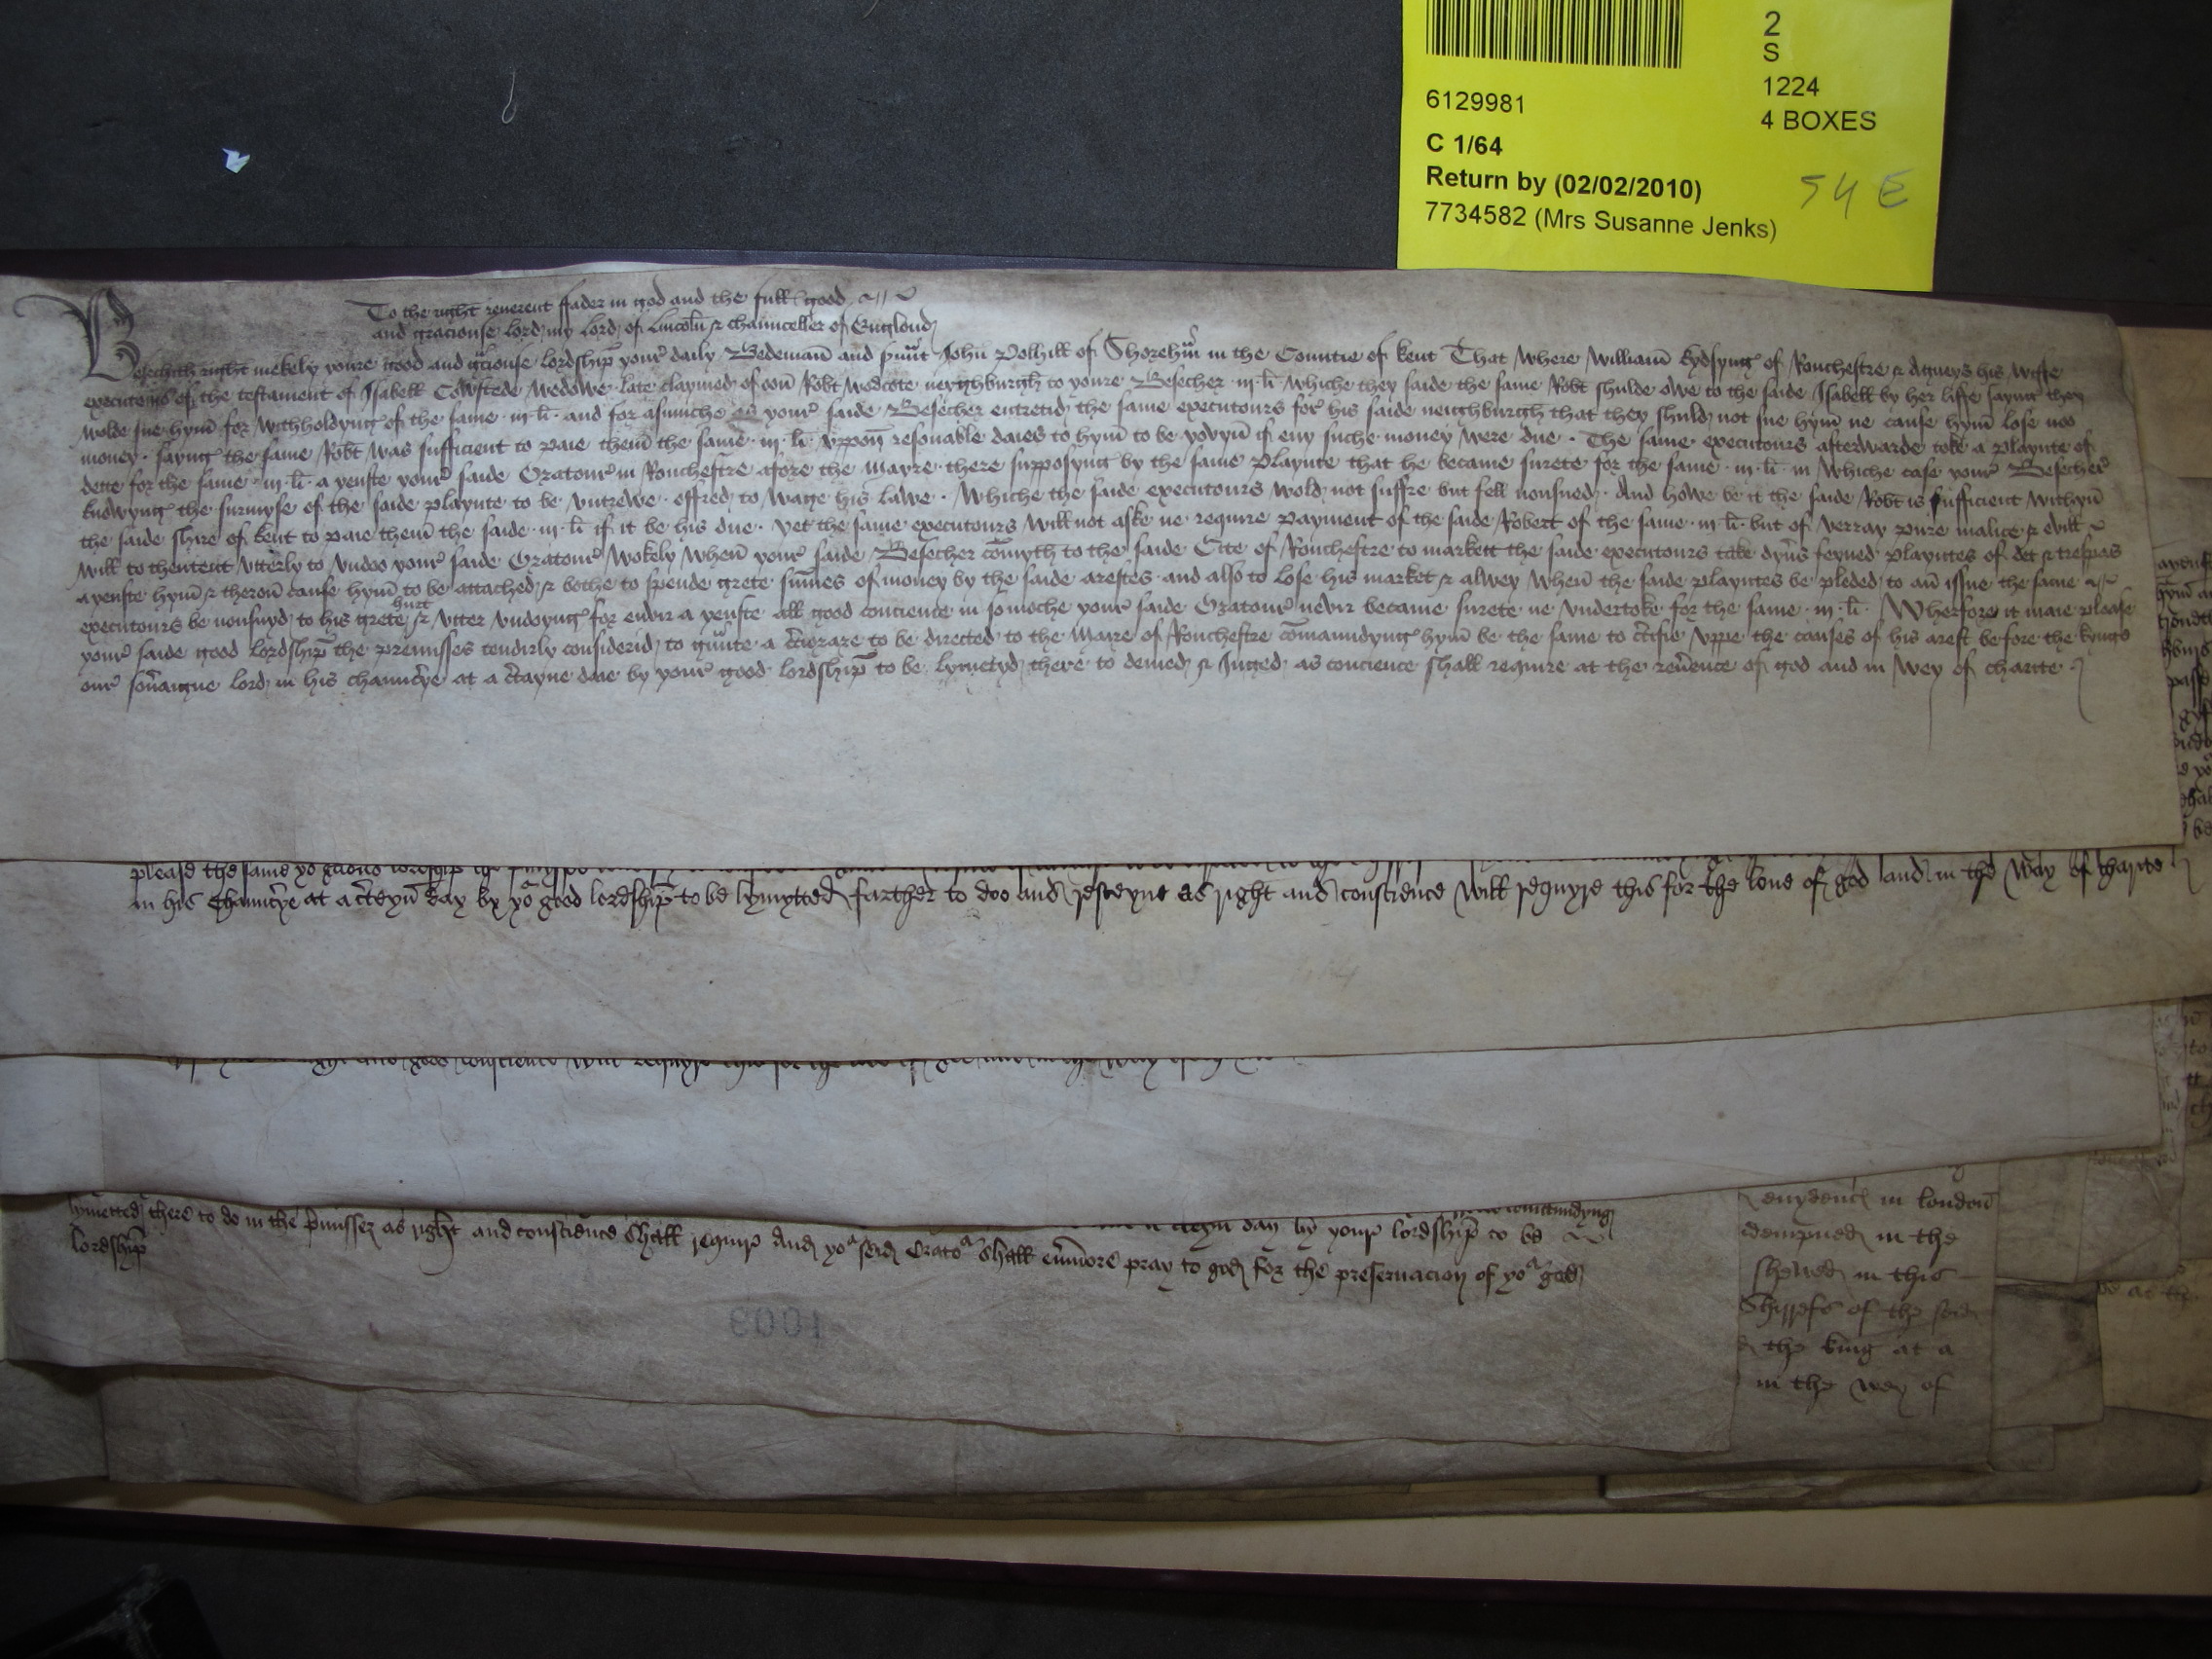 2
S
1224
4 BOXES
6129981
C 1/64
Return by (02/02/2010)
54 E
7734582 (Mrs Susanne Jenks)
To the right reuerent ffader in god and the full good
and graciouse lord my lord of lincoln & chaunceller of Englond
Besechith right mekely youre good and gᵃciouse lordship your daily Bedeman and John Polhill of Shorehᵃm in the Countie of Kent That where William Kydsyng of Rouchestre & Agneys his wiffe
executours of the testament of Isabell Cowstede wedowe late claymed of oon Robt Wodcote neyghburgh to youre Besecher iij li whiche they saide the same Robt shulde owe to the saide Isabell by her liffe sayng they
wolde sue hym for withholdyng of the same iij li and for asmuche as your saide Besecher entretid the same executours for his saide neighburgh that they shuld not sue hym ne cause hym lose noo
money sayng the same Robt was sufficient to paie them the same iij li vppon resonable daies to hym to be yovyn if eny suche money were due The same executours afterwarde toke a playnte of
dette for the same iij li a yenste your saide Oratour in Rouchestre afore the Mayre there supposyng by the same playnte that he became surete for the same iij li in whiche case your Besecher
knowyng the surmyse of the saide playnte to be vntrewe offred to wage his lawe Whiche the saide executours wold not suffre but fell nonsued And howe be it the saide Robt is sufficient withyn
the saide shire of Kent to paie them the saide iij li if it be his due yet the same executours will not aske ne require payment of the saide Robert of the same iij li but of verray pure malice & evill
will to thentent vtterly to vndoo your saide Oratour wokely when your saide Besecher comyth to the saide Cite of Rouchestre to markett the saide executours take dyuˀs feyned playntes of det & trespas
a yenste hym & theron cause hym to be attached & bothe to spende grete sumes of money by the saide arestes and also to lose his market & alwey when the saide playntes be pleded to an issue the same
executours be nonsuyd to his grete hurt & vtter vndoyng for euer a yenste all good concience in so moche your saide Oratour neuer became surete ne vndertoke for the same iij li Wherfore it maie please
your saide good lordship the premisses tendirly considerid to gᵃunte a cˀciorare to be directed to the Maire of Rouchestre comaundyng hym be the same to cˀtifie vppe the causes of his arest before the kyng
our souˀaigne lord in his chauncˀye at a cˀtayne daie by your good lordship to be lymetyd there to demed & Juged as concience shall require at the reuˀence of god and in wey of charite
please the same yoʳ gᵃcious lordship
in his chauncˀye at a cˀteyn day by yoʳ good lordship to be lymytted farther to doo and resceyue as right and conscience will requyre this for the loue of god and in the way of charite
good conscience will requyre this for the
a cˀteyn day by your lordship to be
lymetted there to do in the pˀmissez as right and conscience shall require And yoʳ seid Oratoʳ shall euˀmore pray to god for the preseruacion of yoʳ good
lordship
1003
in london
dempned in the
shewed in this
Shirrefs of the seid
the king at a
in the wey of